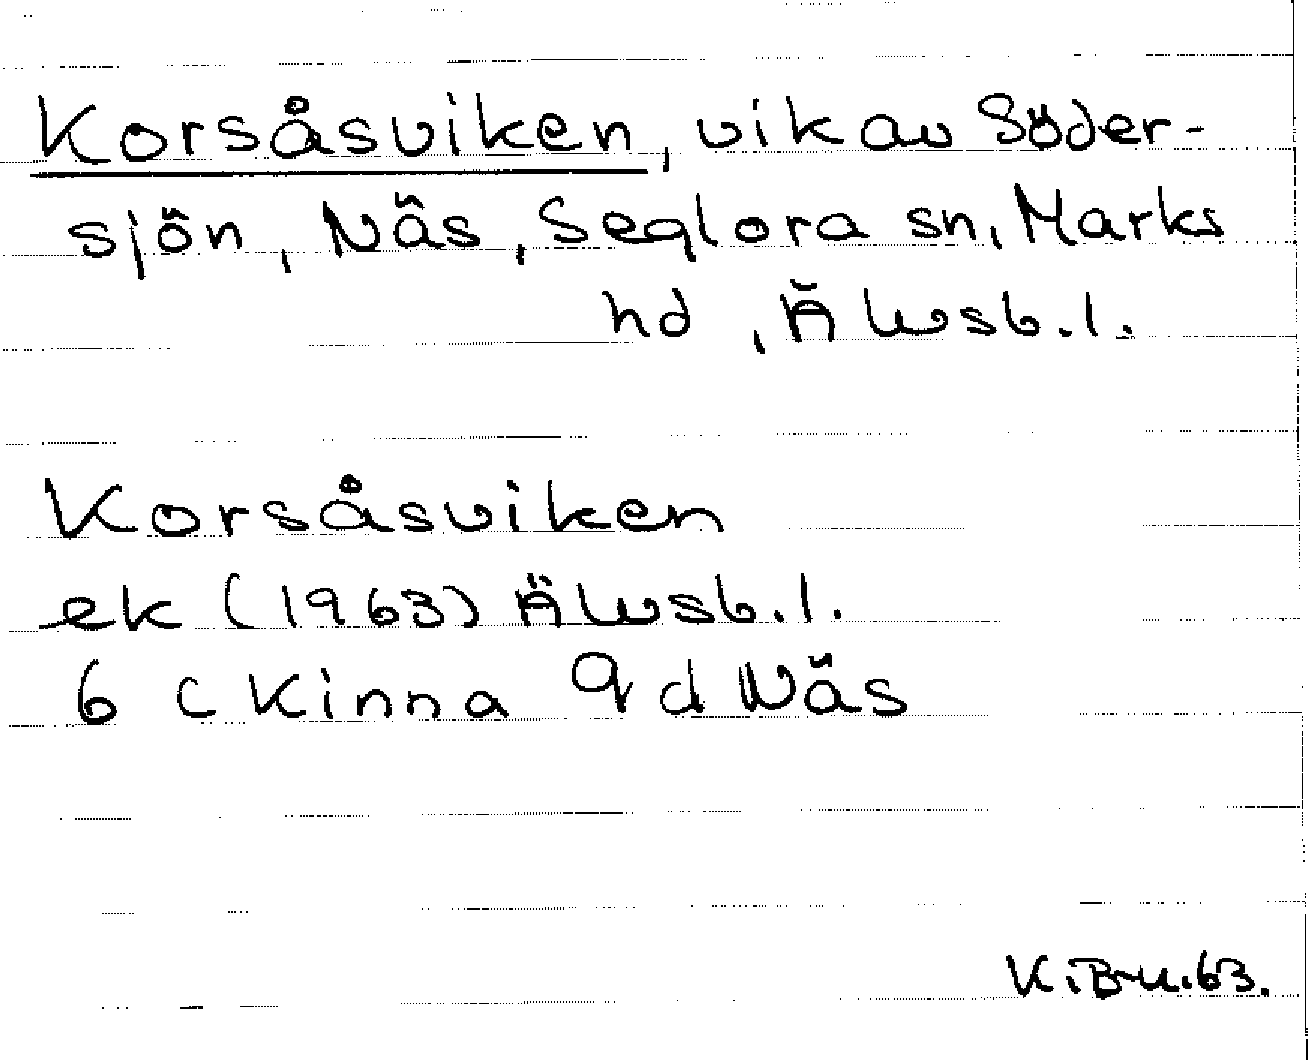 Korsåsviken, vik av Söder-
sjön, Näs, Seglora sn, Marks
hd, Älvsb.l.
Korsåsviken
ek (1963) Älvsb.l.
6 c Kinna 9 d Näs
K.B-u.63.